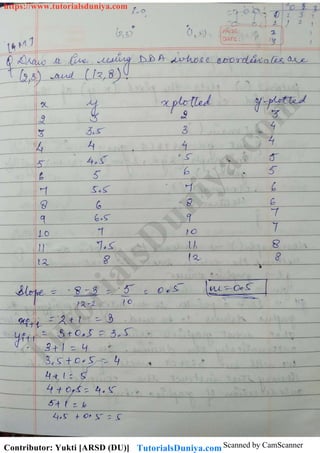 https://www.tutorialsduniya.com
Q Draw a line using DDA whose coordinates are
(2,3) and (12,8)
x y xplotted y-plotted
2 3 2 3
3 3.5 3 4
4 4 4 4
5 4.5 5 5
6 5 6 5
7 5.5 7 6
8 6 8 6
9 6.5 9 7
10 7 10 7
11 7.5 11 8
12 8 12 8
Slope = 8-3 = 5 = 0.5 m=0.5
12-2 10
= 2+1 = 3
= 3+0.5 = 3.5
3+1 = 4
3.5+0.5 = 4
4+1 = 5
4+0.5 = 4.5
5+1 = 6
4.5 +0.5 = 5
TutorialsDuniya.com
Contributor: Yukti [ARSD (DU)] TutorialsDuniya.com Scanned by CamScanner